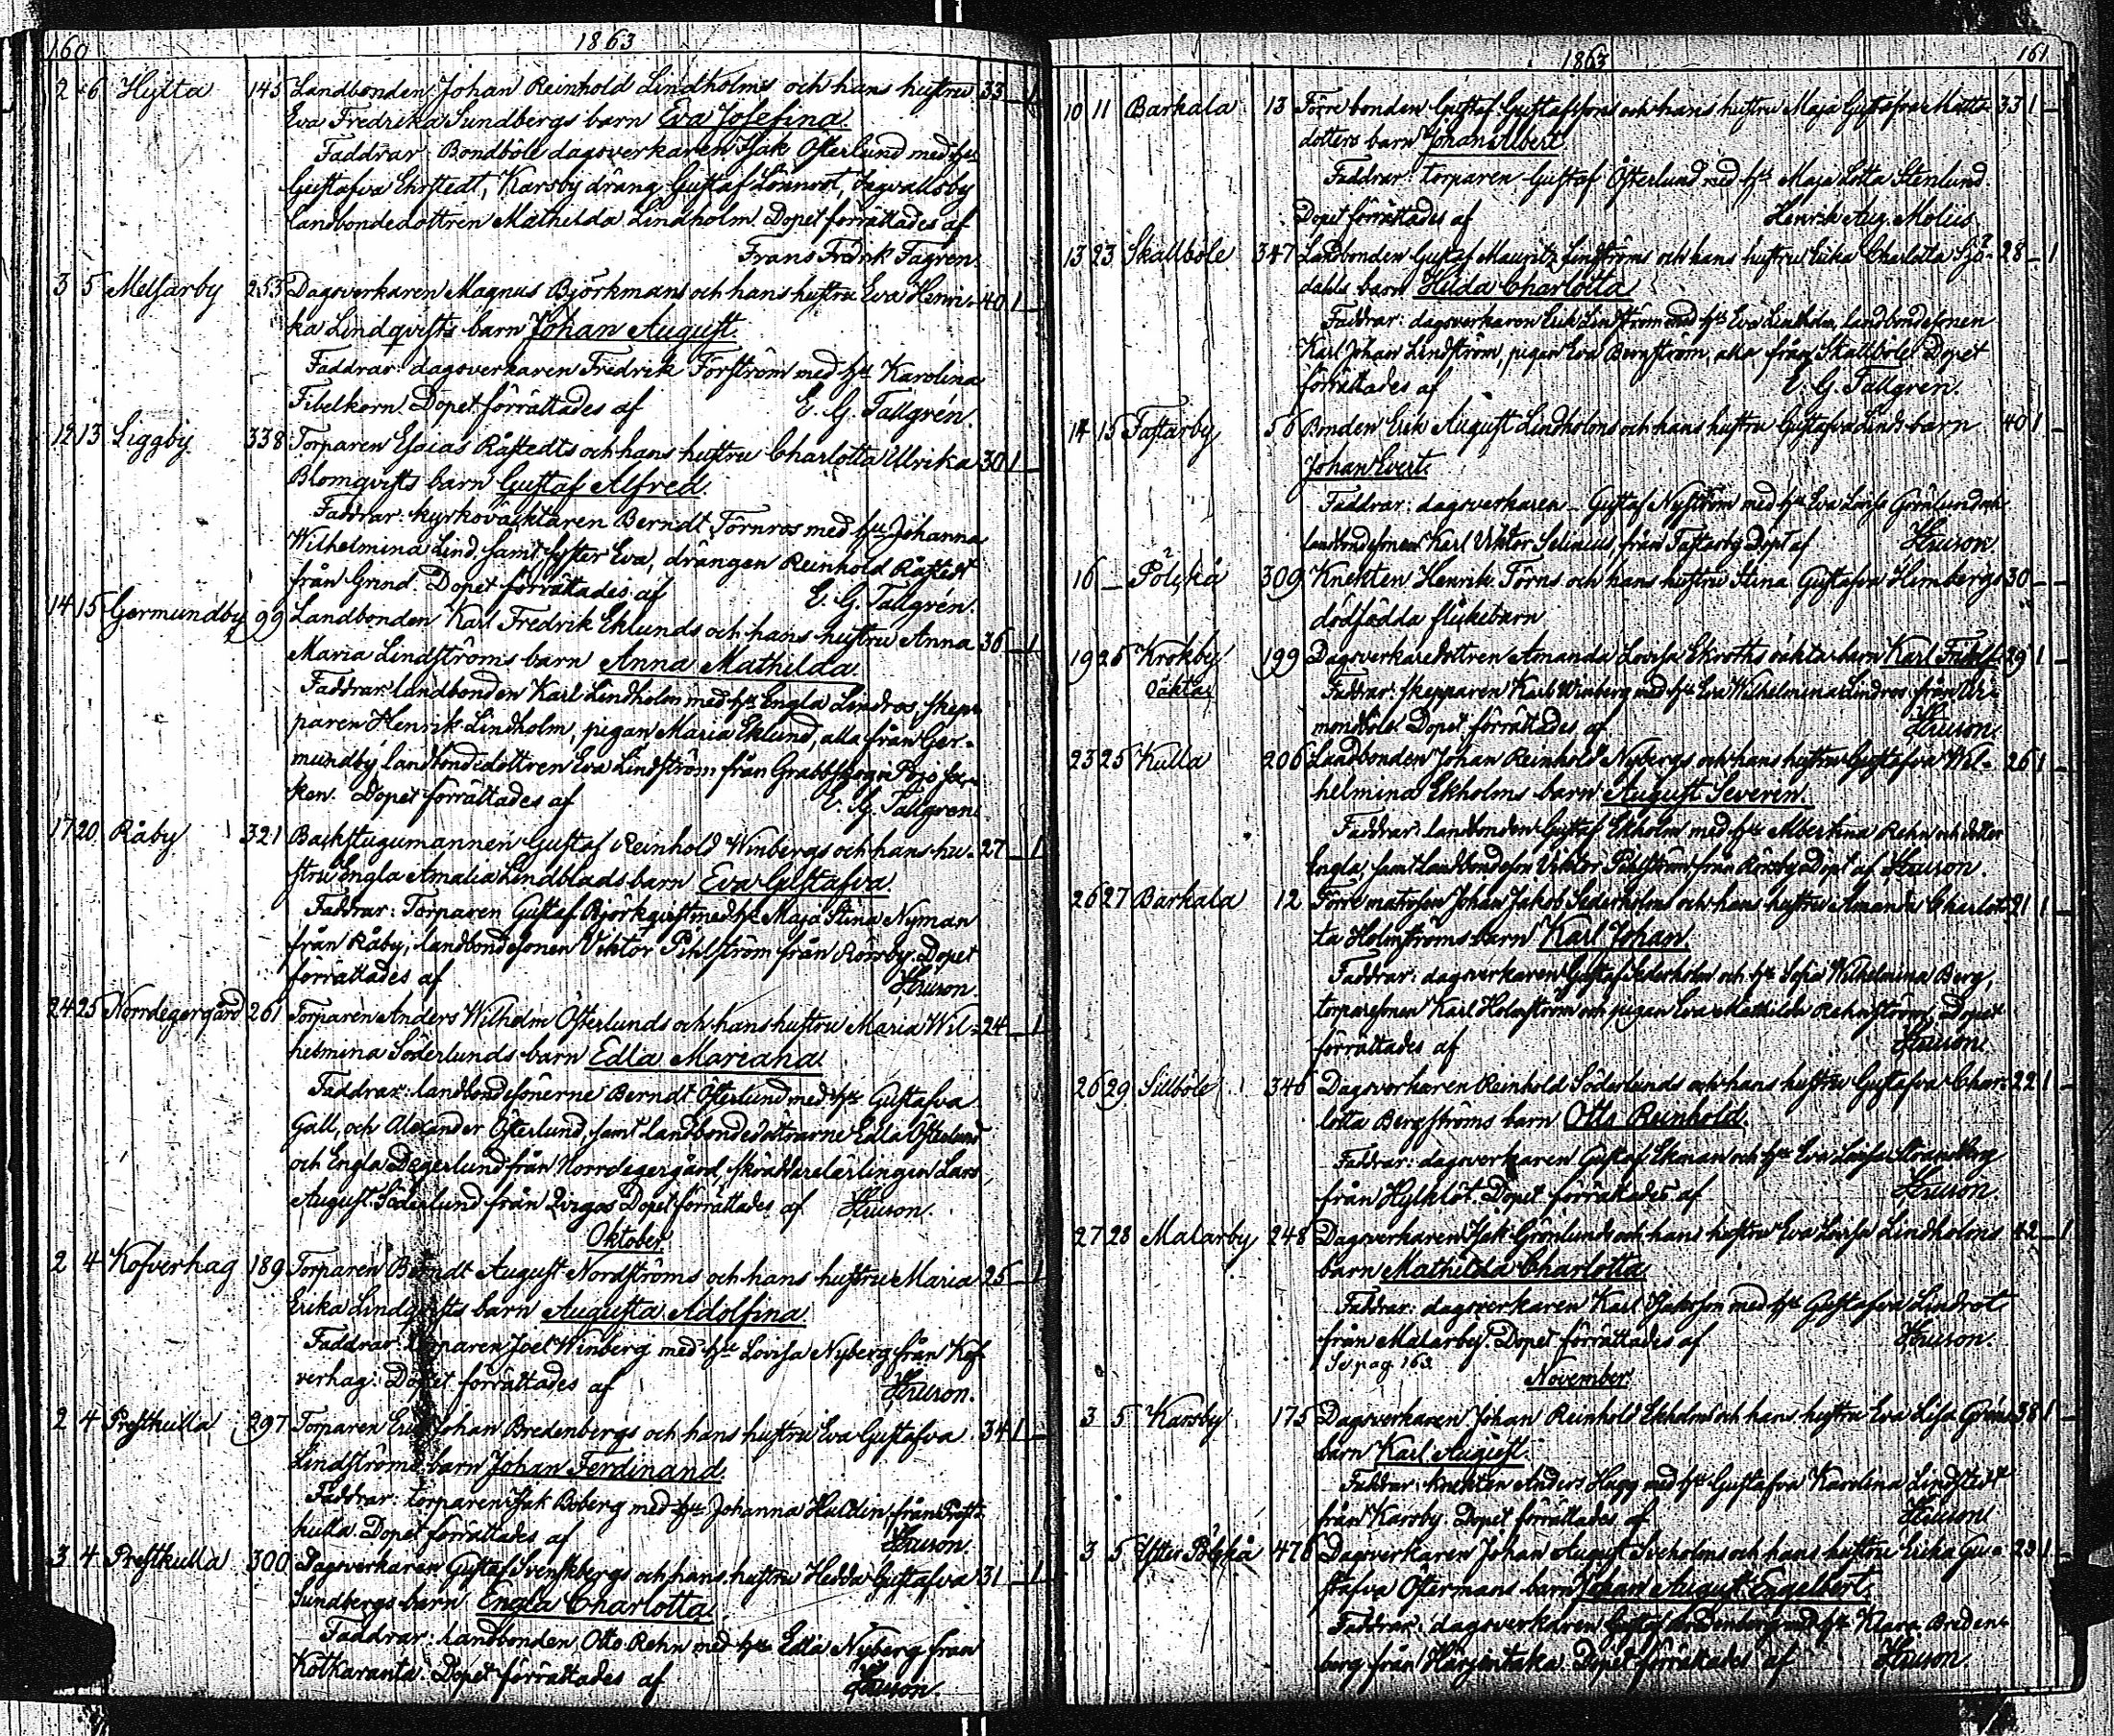 160
1863
2 6 Hylta 145 Landbonden Johan Reinhold Lindholms och hans hustru 33 _ 1
Eva Fredrika Sundbergs barn Eva Josefina.
Faddrar: Bondböle dagsverkaren Isak Österlund med h:u
Gustafva Ehrstedt, Karsby dräng Gustaf Lönnrot,
landbondedottren Mathilda Lindholm. Dopet förrättades af
Frans Fredrik Fagren.
3 5 Melsarby 253 Dagsverkaren Magnus Björkmans och hans hustru Eva Henri- 40 1 _
ka Lindqvists barn Johan August.
Faddrar: dagsverkaren Fredrik Forsström med h:u Karolina
Fibelkorn. Dopet förrättades af E. G. Tallgrén.
12 13 Liggby 338 Torparen Esaias Råstedts och hans hustru Charlotta Ulrika 30 1 _
Blomqvists barn Gustaf Alfred.
Faddrar: kyrkoväktaren Berndt Törnros med h:u Johanna
Wilhelmina Lind, samt syster Eva, drängen Reinhold Råstedt
från Grind. Dopet förrättades af E. G. Tallgrén.
14 15 Germundby 99 Landbonden Karl Fredrik Eklunds och hans hustru Anna 36 _ 1
Maria Lindströms barn Anna Mathilda.
Faddrar: landbonden Karl Lindholm med h:u Engla Lindros, skep-
paren Henrik Lindholm, pigan Maria Eklund, alla från Ger-
mundby, landbondedottren Eva Lindström från Pojo soc-
ken. Dopet förrättades af E. G. Tallgren.
17 20 Råby 321 Backstugumannen Gustaf Reinhold Winbergs och hans hu- 27 _ 1
stru Engla Amalia Lindblads barn Eva Gustafva.
Faddrar: Torparen Gustaf Björkqvist med h:u Maja Stina Nyman
från Råby, landbondesonen Viktor Pihlström från Rörsby. Dopet
förrättades af
24 25 Norrdegergård 261 Torparen Anders Wilhelm Österlunds och hans hustru Maria Wil- 24 _ 1
helmina Söderlunds barn Edla Mariana.
Faddrar: landbondesönerne Berndt Österlund med h:u Gustafva
Gall, och Alexander Österlund, samt landbondedöttrarne Edla Österlund
och Engla Degerlund från Norrdegergård, skräddarelärlingen Lars
August Söderlund från Dopet förrättades af
Oktober
2 4 Kofverhag 189 Torparen Berndt August Nordströms och hans hustru Maria 25 _ 1
Erika Lindqvists barn Augusta Adolfina.
Faddrar: torparen Joel Winberg med h:u Lovisa Nyberg från Kof-
verhag. Dopet förrättades af
2 4 Prestkulla 297 Torparen Erik Johan Bredenbergs och hans hustru Eva Gustafva 34 1 _
Lindströms barn Johan Ferdinand.
Faddrar: torparen Isak Boberg med h:u Johanna Huldin från Prest-
kulla. Dopet förrättades af
3 4 Prestkulla 300 Dagsverkaren Gustaf Svenskbergs och hans hustru Hedda Gustafva 31 _ 1
Sundbergs barn Engla Charlotta.
Faddrar: landbonden Otto Rehn med h:u Edla Nyberg från
Kotkaranta. Dopet förrättades af
161
1863
10 11 Barkala 13 Förre bonden Gustaf Gustafssons och hans hustru Maja Gustafva Matts- 33 1 _
dotters barn Johan Albert.
Faddrar: torparen Gustaf Österlund med h:u Maja Lotta Stenlund.
Dopet förrättades af Henrik Aug. Molies
13 23 Skallböle 347 Landbonden Gustaf Mauritz Lindströms och hans hustru Erika Charlotta Sjö- 28 _ 1
dahls barn Hilda Charlotta
Faddrar: dagsverkaren Erik Lindström med h:u Eva Lindholm, landbondesonen
Karl Johan Lindström, pigan Eva Bernström, alla från Skallböle. Dopet
förrättades af E. G. Tallgren.
14 15 Fastarby 56 Bonden Erik August Lindholms och hans hustru Gustafva Linds barn 40 1 _
Johan Evert.
Faddrar: dagsverkaren Gustaf Nyström med h:u Eva Lovisa Grönlund och
landbondesonen Karl Viktor Selinius från Fastarby. Dopet af
16 _ Polskå 309 Knekten Henrik Törns och hans hustru Stina Gustafva Himbergs 30 _ _
dödfödda flickebarn
19 25 Krokby 199 Dagsverkaredottren Amanda Lovisa Ekroths oäkta barn Karl 29 1 _
Oäkta
Faddrar: skepparen Karl Winberg med h:u Eva Wilhelmina Lindros från
Dopet förrättades af
23 25 Kulla 206 Landbonden Johan Reinhold Nybergs och hans hustru Gustafva Wil- 26 1 _
helmina Ekholms barn August Severin.
Faddrar: landbonden Gustaf Ekholm med h:u Albertina Rehn och dotter
Engla, samt landbondeson Viktor Pihlström från Rörsby. Dopet af
26 27 Barkala 12 Förre matrosen Johan Jakob Sederholms och hans hustru Amanda Charlot- 21 1 _
ta Holmströms barn Karl Johan.
Faddrar: dagsverkaren Gustaf Sederholm och h:u Sofia Wilhelmina Berg,
torparesonen Karl Holmström och pigan Eva Mathilda Rehnström. Dopet
förrättades af
26 29 Sillböle 346 Dagsverkaren Reinhold Söderlunds och hans hustru Gustafva Char- 22 1 _
lotta Bergströms barn Otto Reinhold.
Faddrar: dagsverkaren Gustaf Ekman och h:u Eva Lovisa Strandberg
från Dopet förrättades af
27 28 Malarby 248 Dagsverkaren Isak Grönlunds och hans hustru Eva Lovisa Lindholms 42 _ 1
barn Mathilda Charlotta
Faddrar: dagsverkaren Karl Isaksson med h:u Gustafva Lindrot
från Malarby. Dopet förrättades af
Se pag. 163.
November
3 5 Karsby 175 Dagsverkaren Johan Reinhold Ekholms och hans hustru Eva Lisa 38 1 _
barn Karl August.
Faddrar: knekten Anders Hagg med h:u Gustafva Karolina Lindstedt
från Karsby. Dopet förrättades af
3 5 Ytter Polskå 476 Dagsverkaren Johan August och hans hustru Erika Gu- 23 1 _
stafva Östermans barn Johan August Engelbert.
Faddrar: dagsverkaren Gustaf med h:u Klara Breden-
berg från Harjentaka. Dopet förrättades af